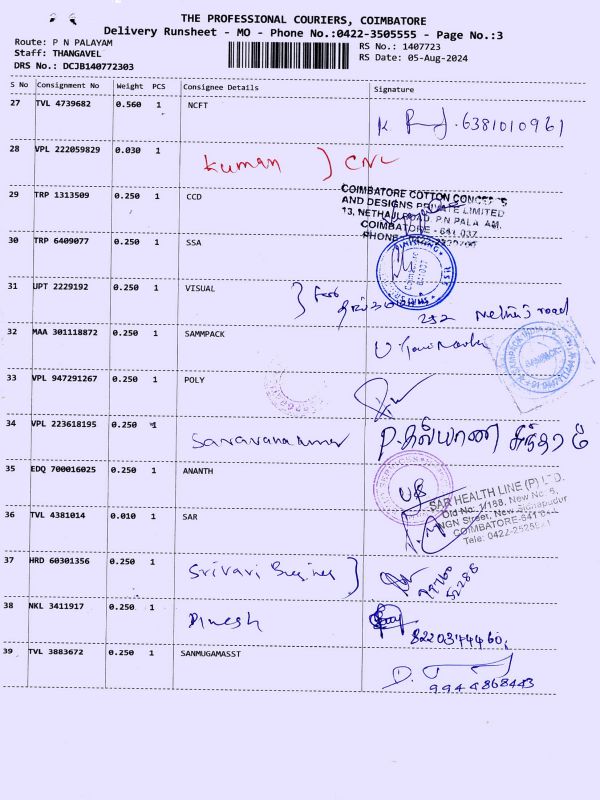 THE PROFESSIONAL COURIERS, COIMBATORE
Delivery Runsheet - MO - Phone No.:0422-3505555 - Page No.:3
Route: P N PALAYAM
RS No.: 1407723
Staff: THANGAVEL
RS Date: 05-Aug-2024
DRS No.: DCJB140772303
S No Consignment No Weight PCS Consignee Details Signature
27 TVL 4739682 0.560 1 NCFT
6381010961
28 VPL 222059829 0.030 1
Kumar } CNC
29 TRP 1313509 0.250 1 CCD
COIMBATORE COTTON CONCEPTS
AND DESIGNS PRIVATE LIMITED
13, NETHAJI ROAD, P.N.PALAYAM,
COIMBATORE - 641 037
PHONE
30 TRP 6409077 0.250 1 SSA
31 UPT 2229192 0.250 1 VISUAL
252 Nethaji road
32 MAA 301118872 0.250 1 SAMMPACK
SAMMPACK
33 VPL 947291267 0.250 1 POLY
34 VPL 223618195 0.250 1
Saravanakumar P.கல்யாண சுந்தரம்
35 EDQ 700016025 0.250 1 ANANTH
36 TVL 4381014 0.010 1 SAR
SAR HEALTH LINE (P) LTD.
Old No: 1/188, New No: 5,
NGN Street, New Sidhapudur
COIMBATORE-641 044
Tele: 0422-2525
37 HRD 60301356 0.250 1
Srivari Business }
99760
52286
38 NKL 3411917 0.250 1
Dinesh
8220344460
39 TVL 3883672 0.250 1 SANMUGAMASST
D.
9944868443